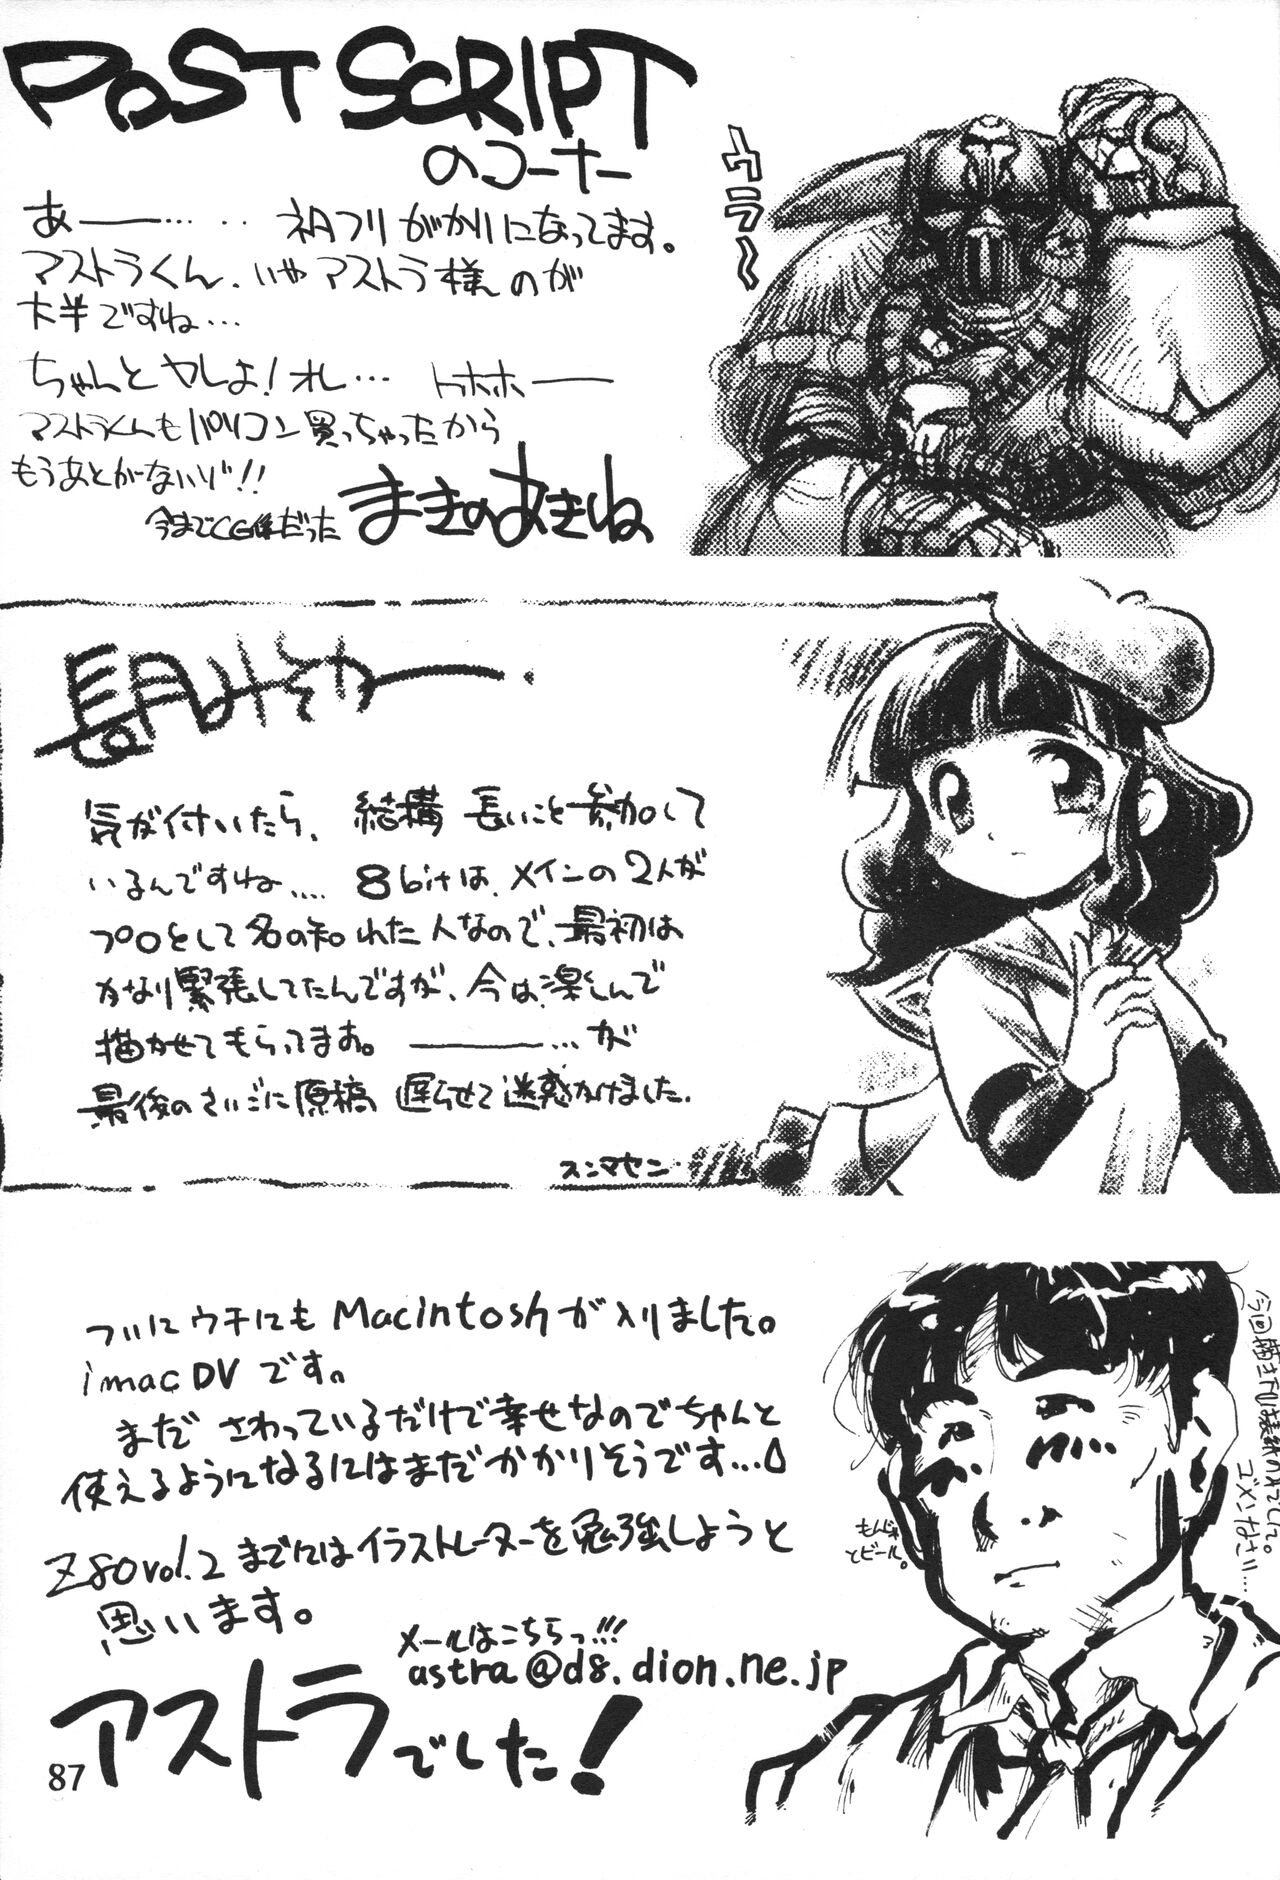 POSTSCRIPT
のコーナー
ウラ〜
あ――…‥ ネコフリがかりになってます。
マストラくん、いやアストラ様のが
大半ですね…
ちゃんとヤレよ!オレ… トホホ――
マストラくんもパソコン買っちゃったから
もうあとがないゾ!!
今までCG係だった まきのあきね
長月みそか
気が付いたら、結構長いこと参加して
いるんですね.... 8bitは、メインの2人が
プロとして名の知れた人なので、最初は
かなり緊張してたんですが、今は、楽しんで
描かせてもらってます。――…が
最後のさいごに原稿遅らせて迷惑かけました.
スンマセン.
ついにウチにもMacintoshが入りました。
imacDVです。
まださわっているだけで幸せなのでちゃんと
使えるようになるにはまだかかりそうです…
Z80vol.2までにはイラストレーターを勉強しようと
思います。
メールはこちらっ!!!
astra@d8.dion.ne.jp
アストラでした!
もんじゃ
とビール。
ゴメンなさい…
87